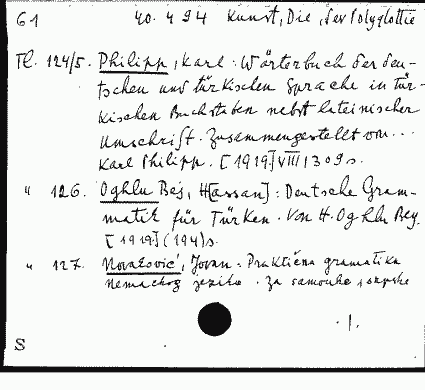 61 40.494 Kunst, Die, der Polyglottie
Tl. 124/5. Philipp, Karl: Wörterbuch der deu-
tschen und türkischen Sprache in tür-
kischen Buchstaben nebst lateinischer
Umschrift. Zusammengestellt von...
Karl Philipp. [1919] VIII, 309 s.
" 126. Oghlu Bej, H[assan]: Deutsche Gram-
matik für Türken. Von H. Oghlu Bey.
[1919] (194) s.
" 127. Jovan: Praktična gramatika
nemačkog jezika. Za samouke i srpske
.1.
S